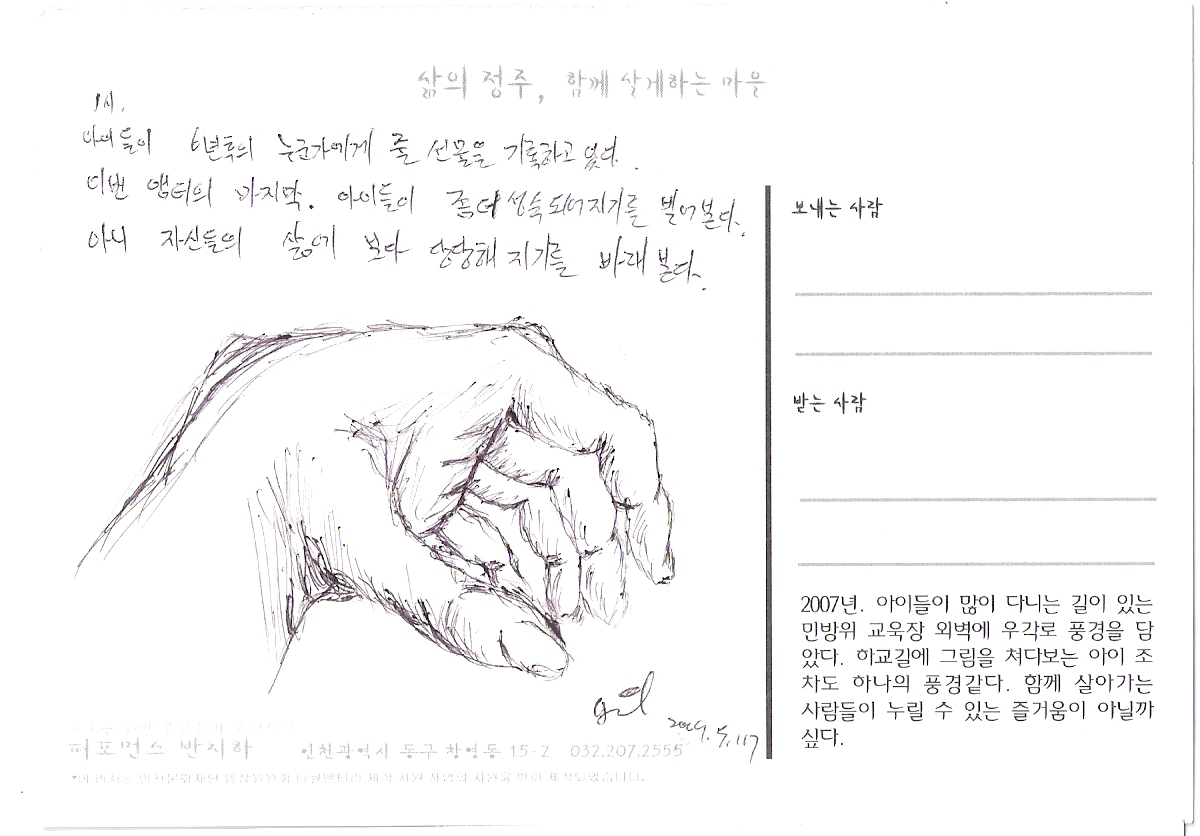 삶의 정주, 함께 살게하는 마을
1시.
아이들이 6년후의 누군가에게 줄 선물을 기록하고 있다.
이번 캠티의 마지막. 아이들이 좀더 성숙되어지기를 빌어본다.
아니 자신들의 삶에 보다 당당해 지기를 바래 본다.
보내는 사람
받는 사람
2007년. 아이들이 많이 다니는 길이 있는
민방위 교육장 외벽에 우각로 풍경을 담
았다. 하교길에 그림을 쳐다보는 아이 조
차도 하나의 풍경같다. 함께 살아가는
사람들이 누릴 수 있는 즐거움이 아닐까
싶다.
퍼포먼스 반지하 인천광역시 동구 창영동 15-2 032.207.2555